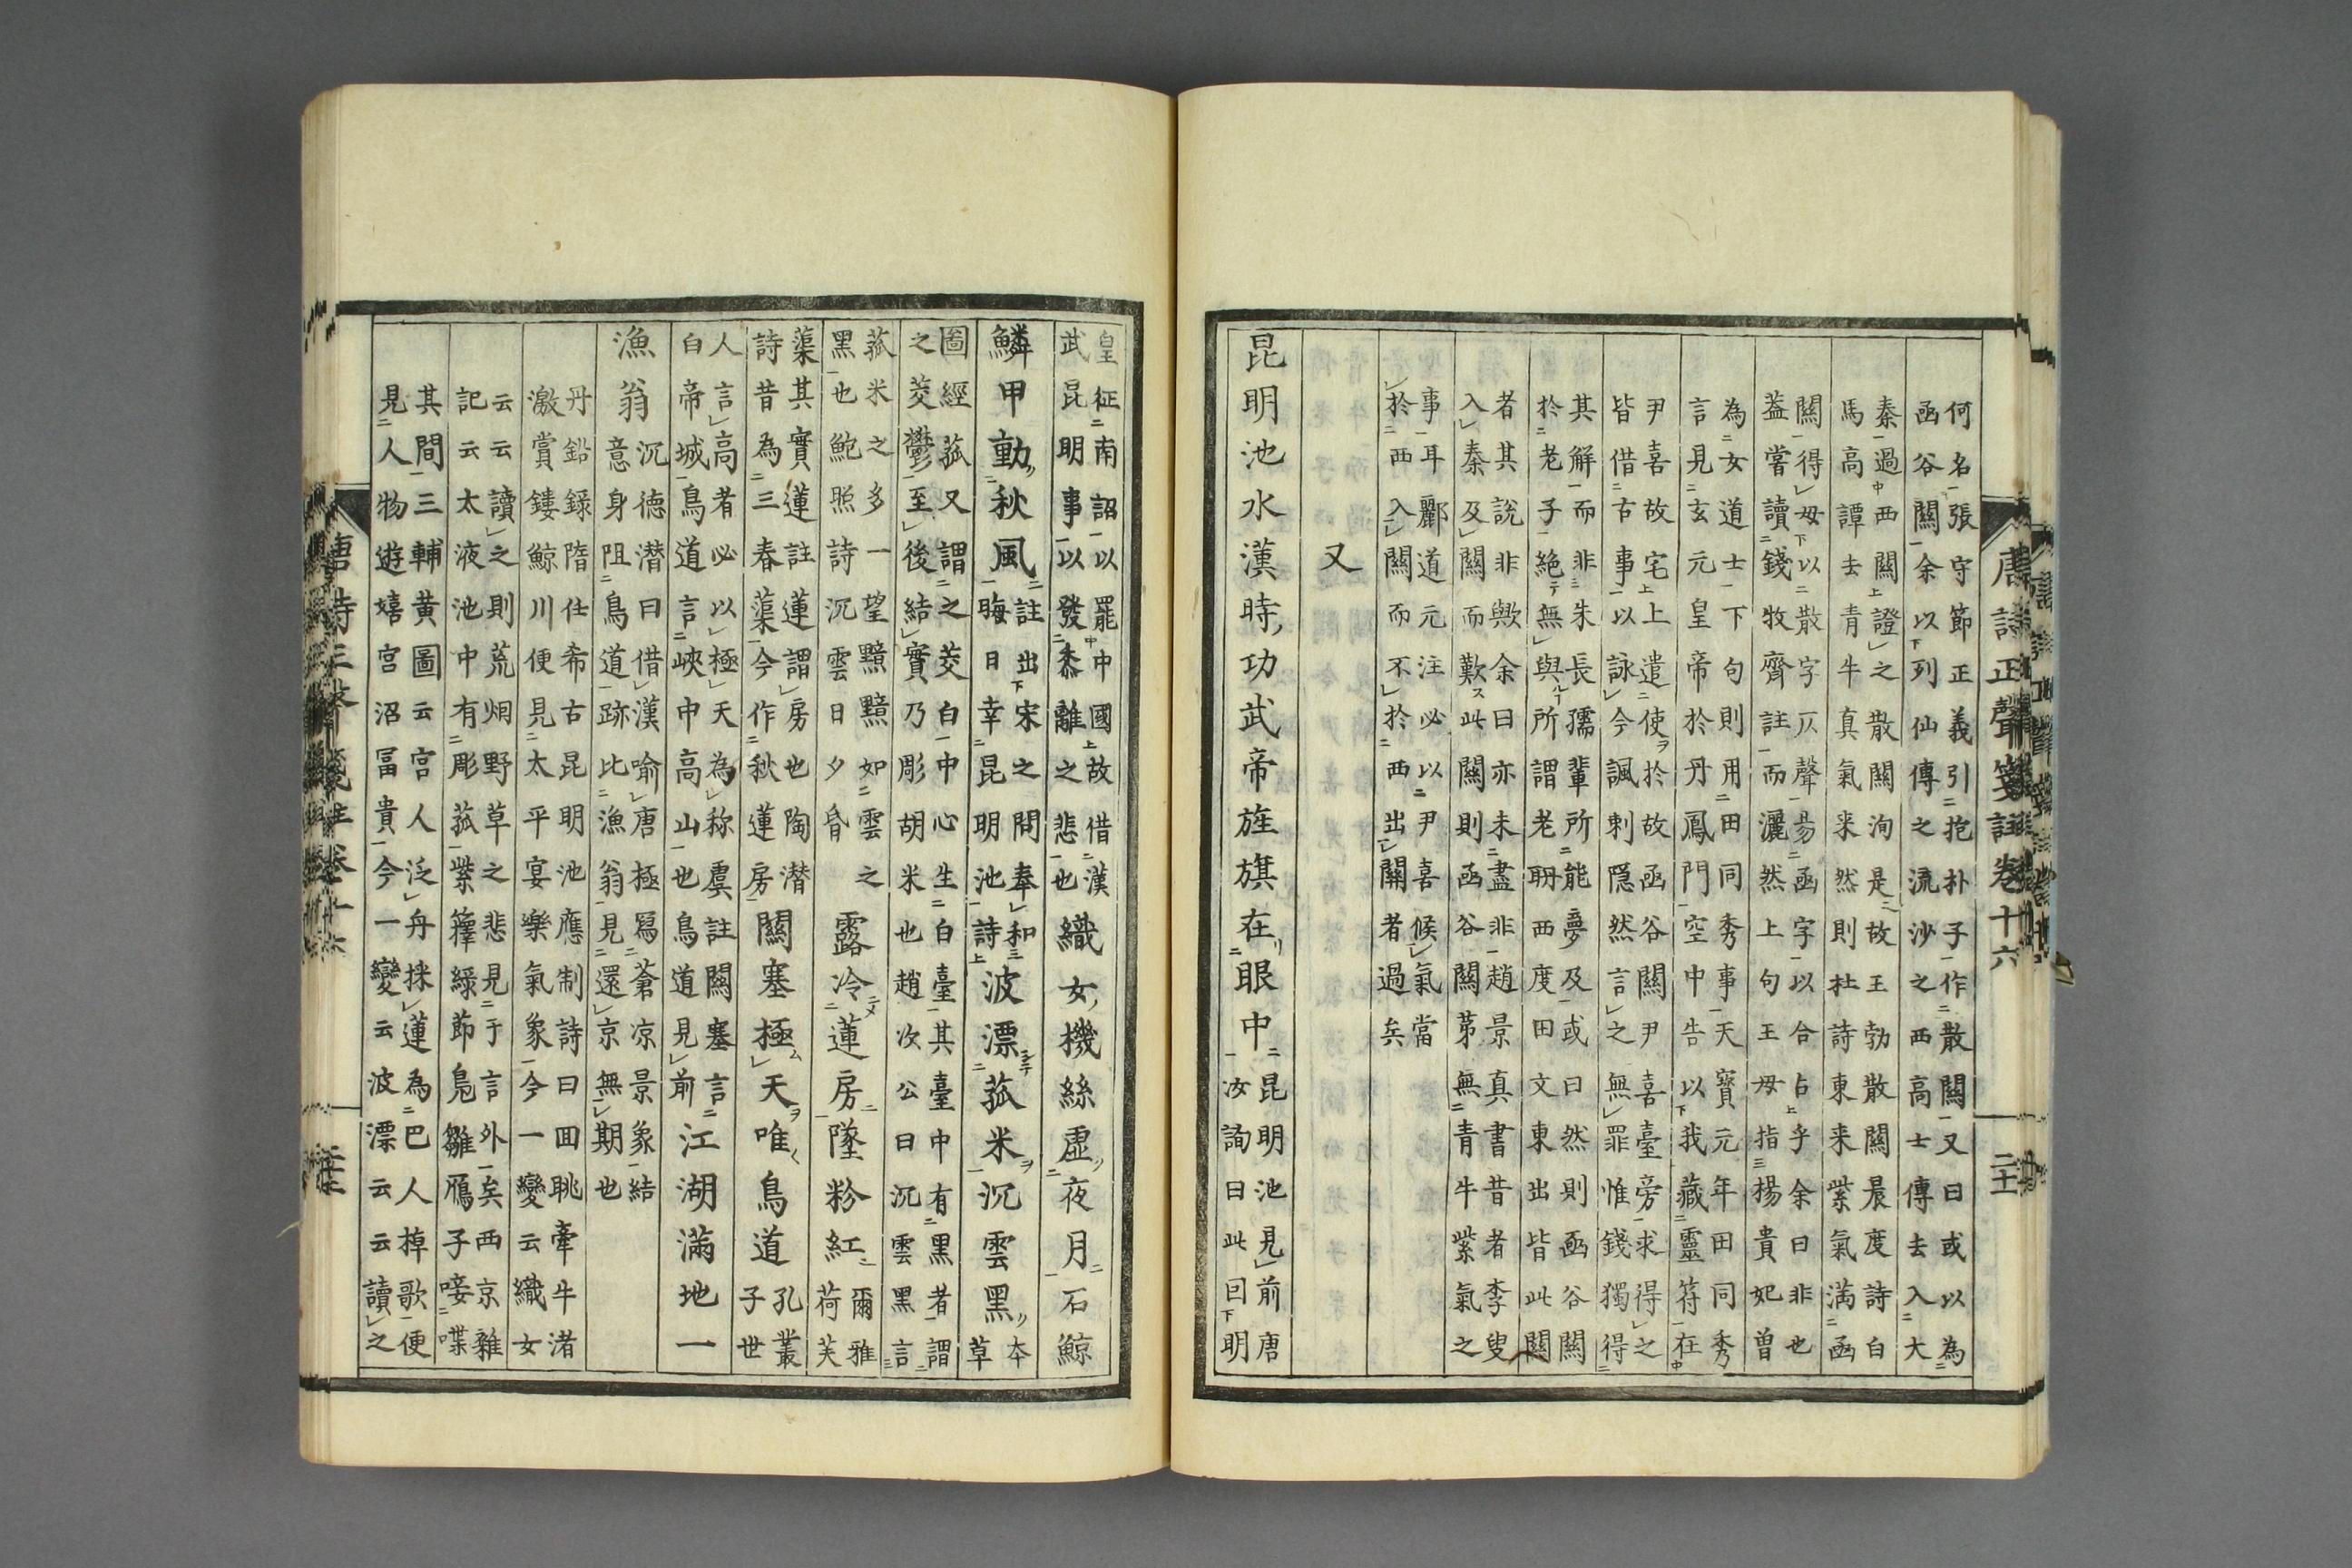 唐詩正聲箋註卷十六
何名張守節正義引抱朴子作散關又曰或以為
函谷關余以列仙傳之流沙之西高士傳去入大
秦過西關證之散關洵是故王勃散關晨度詩白
馬高譚去青牛真氣来然則杜詩東来紫氣滿函
關得毋以散字仄聲易函字以合占乎余曰非也
葢嘗讀錢牧齊註而灑然上句王母指楊貴妃曾
為女道士下句則用田同秀事天寶元年田同秀
言見玄元皇帝於丹鳳門空中告以我藏靈符在
尹喜故宅上遣使於故函谷關尹喜臺旁求得之
皆借古事以詠今諷刺隠然言之無罪惟錢獨得
其解而非朱長孺輩所能夢及或曰然則函谷關
於老子絶無與所謂老耼西度田文東出皆此關
者其說非歟余曰亦未盡非趙景真書昔者李叟
入秦及關而歎此關則函谷關苐無青牛紫氣之
事耳酈道元注必以尹喜候氣當
於西入關而不於西出關者過矣
又
昆明池水漢時功武帝旌旗在眼中
昆明池見前唐
汝詢曰此曰明
皇征南詔以罷中國故借漢
武昆明事以發黍離之悲也
織女機絲虛夜月石鯨
鱗甲動秋風
註出宋之問奉和
晦日幸昆明池詩
波漂菰米沉雲黑
本
草
圖經菰又謂之茭白中心生白臺其臺中有黒者謂
之茭鬱至後結實乃彫胡米也趙次公曰沉雲黒言
菰米之多一望黯黯如雲之
黒也鮑照詩沉雲日夕昏
露冷蓮房墜粉紅
爾雅
荷芙
蕖其實蓮註蓮謂房也陶潜
詩昔為三春蕖今作秋蓮房
關塞極天唯鳥道
孔叢
子世
人言高者必以極天為称虞註關塞言
白帝城鳥道言峽中高山也鳥道見前
江湖滿地一
漁翁
沉德潜曰借漢喻唐極冩蒼凉景象結
意身阻鳥道跡比漁翁見還京無期也
丹鉛録隋任希古昆明池應制詩曰囬眺牽牛渚
激賞鏤鯨川便見太平宴樂氣象今一變云織女
云云讀之則荒烟野草之悲見于言外矣西京雜
記云太液池中有彫菰紫籜緑節鳧雛鴈子唼喋
其間三輔黄圖云宮人泛舟採蓮為巴人棹歌便
見人物遊嬉宮沼冨貴今一變云波漂云云讀之